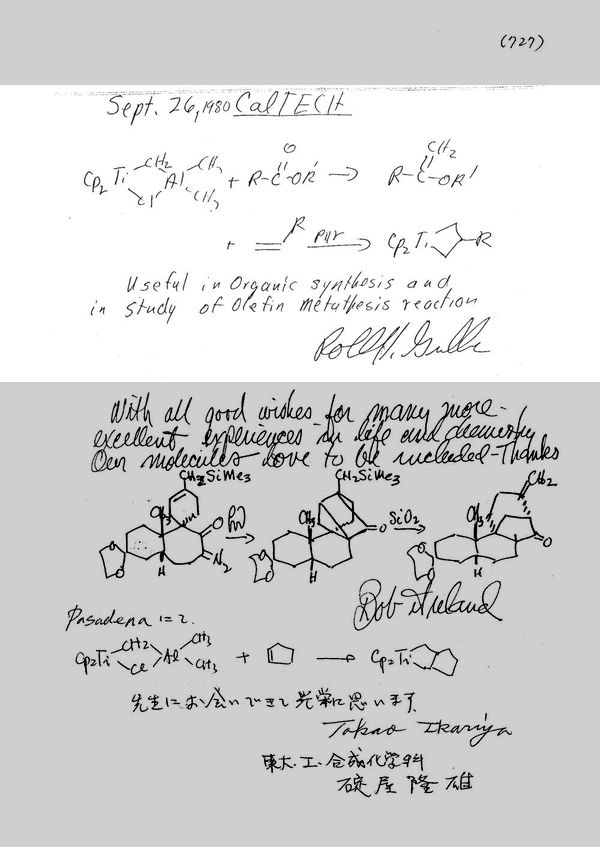 (727)
Sept. 26, 1980 CalTECH
O CH2
Cp2 Ti CH2 Al CH3 + R-C-OR' → R-C-OR'
Cl CH3
+ R pyr → Cp2 Ti R
Useful in Organic synthesis and
in study of Olefin Metathesis reaction
With all good wishes for many more
excellent experiences in life and chemistry
Our molecules love to be included - Thanks
CH2SiMe3 CH2SiMe3 CH2
CH3 O hν CH3 O SiO2 CH3 O
O O H N2 O O H O O H
Bob Ireland
Pasadena にて
Cp2Ti CH2 Al CH3 + → Cp2Ti
Cl CH3
先生にお会いできて光栄に思います
Takao Ikariya
東大・工・合成化学科
碇屋隆雄